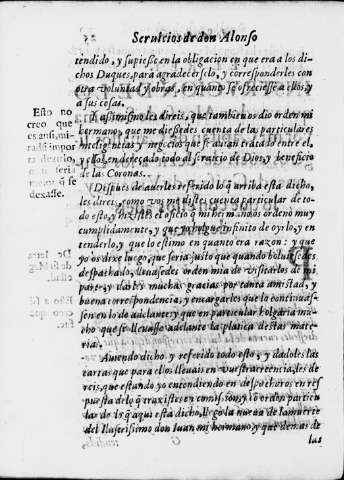 Seruicios de don Alonso
tendido, y supiesse en la obligacion en que era a los di-
chos Duques, para agradecerselo, y corresponderles con
otra voluntad y obras, en quanto se ofreciesse a ellos, y
a sus cosas.
Assimismo les direis, que tambien os dio orden mi
hermano, que me diessedes cuenta de las particulares
inteligencias y negocios que se auian tratado entre el,
y ellos, endereçado todo al seruicio de Dios, y beneficio
de las Coronas.
Esto no
creo que
es ansi, mi-
rad si impor
ta dezirlo,
o si seria
mejor q̃ se
dexasse.
Despues de auerles referido lo q̃ arriba esta dicho,
les direis, como vos me distes cuenta particular de to-
do esto, y hizistes el oficio q̃ mi hermano os ordeno muy
cumplidamente, y que yo holgue infinito de oyrlo, y en
tenderlo, y que lo estimo en quanto era razon: y que
yo os dixe luego, que seria justo que quando boluiessedes
despachado, lleuassedes orden mia de visitarlos de mi
parte, y darles muchas gracias por tanta amistad, y
buena correspondencia, y encargarles que lo continuas-
sen en lo de adelante, y que en particular holgaria mu-
cho que se lleuasse adelante la platica destas mate-
rias.
Auiendo dicho y referido todo esto, y dadoles las
cartas que para ellos lleuais en vuestra creencia, les di-
reis, que estando yo entendiendo en despacharos en res
puesta de lo q̃ truxistes en comision, y lo orden particu
lar de lo q̃ aqui esta dicho, llego la nueua de la muerte
del Illustrissimo don Iuan mi hermano, y que demas de
las